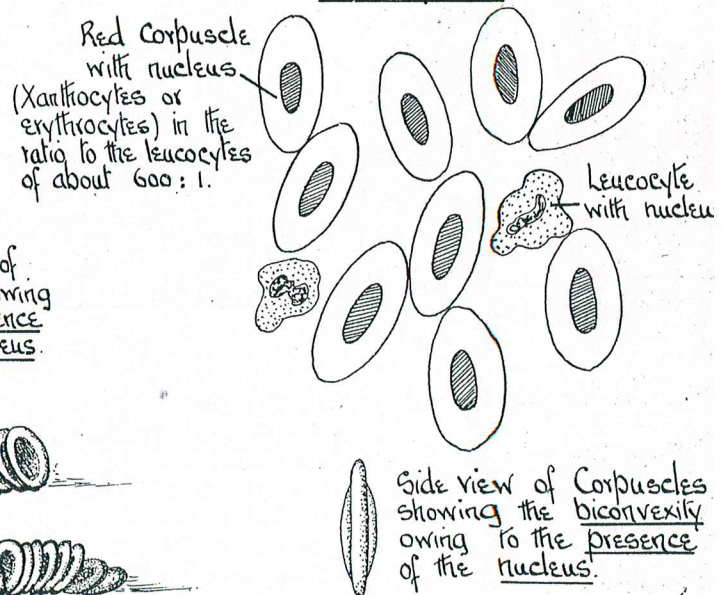 Red Corpuscle
with nucleus
(Xanthocytes or
erythrocytes) in the
ratio to the leucocytes
of about 600 : 1.
Leucocyte
with nucleu
of
wing
ence
eus.
Side view of Corpuscles
showing the biconvexity
owing to the presence
of the nucleus.